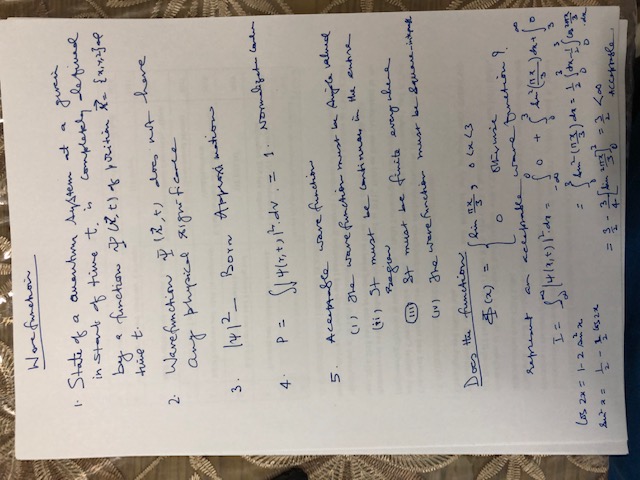 Wavefunction
1. State of a quantum system at a given
instant of time t, is completely defined
by a function Ψ(r⃗,t) of position r⃗ = {x,y,z} at
time t.
2. Wavefunction Ψ(r⃗,t) does not have
any physical significance
3. |Ψ|² — Born Approximation
4. P = ∫∫|Ψ(r,t)|².dv. = 1. Normalization
5. Acceptable wave function
(i) The wave function must be single valued
(ii) It must be continuous in the entire
Region
(iii) It must be finite everywhere
(iv) The wave function must be square-
Does the function
Φ(x) = { sin πx/3, 0<x<3
0 otherwise
represent an acceptable wave function?
I = ∫_{-∞}^{∞} |Ψ(x,t)|².dx = ∫_{-∞}^{0} 0 + ∫_{0}^{3} sin²(πx/3)dx + ∫_{3}^{∞} 0
Cos 2x = 1-2 sin²x
= ∫_{0}^{3} sin²(πx/3)dx = 1/2 ∫_{0}^{3} dx - 1/2 ∫_{0}^{3} cos 2πx/3 .dx
Sin²x = 1/2 - 1/2 cos2x
= 3/2 - 3/4 [sin 2πx/3]_{0}^{3} = 3/2 < ∞
Acceptable